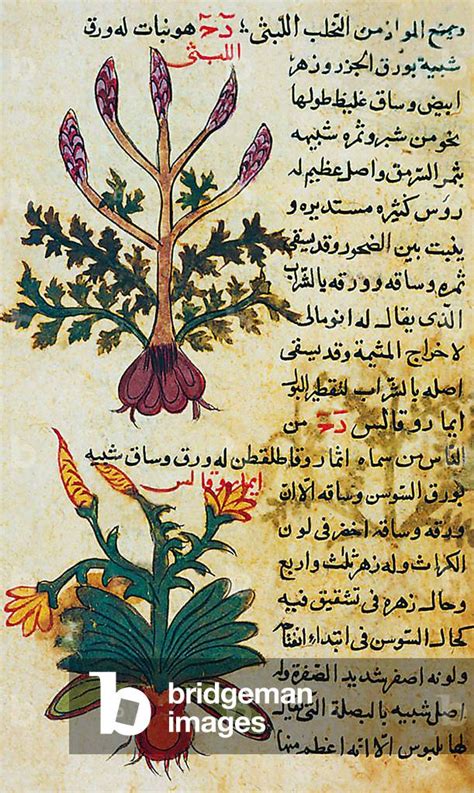 وجميع المواد من التخلب اللبثي؛ دحَ هو نبات له ورق
اللبثي
شبيه بورق الجزر وزهر
ابيض وساق غليظ طولها
نحو من شبر وثمره شبيهه
بثمر السرمق واصل عظيم له
روس كثيره مستديره و
ينبت بين الصخور وقد يسقى
ثمره وساقه وورقه بالشراب
الذي يقال له انومالي
لاخراج المشيمة وقد يسقى
اصله بالشراب لتقطير البول
ايماروقالس دحَ من
الناس من سماه ايماروقاطلقطن له ورق وساق شبيه
ايماروقالس
بورق السوسن وساقه الا ان
ورقه وساقه اخضر في لون
الكراث وله زهر ثلث واربع
وحال زهره في تشقيق فيه
كحال السوسن في ابتداء انفتاح
ولونه اصفر شديد الصفرة وله
اصل شبيه بالبصلة التي يقال
لها بلبوس الا انه اعظم منها
b bridgeman images